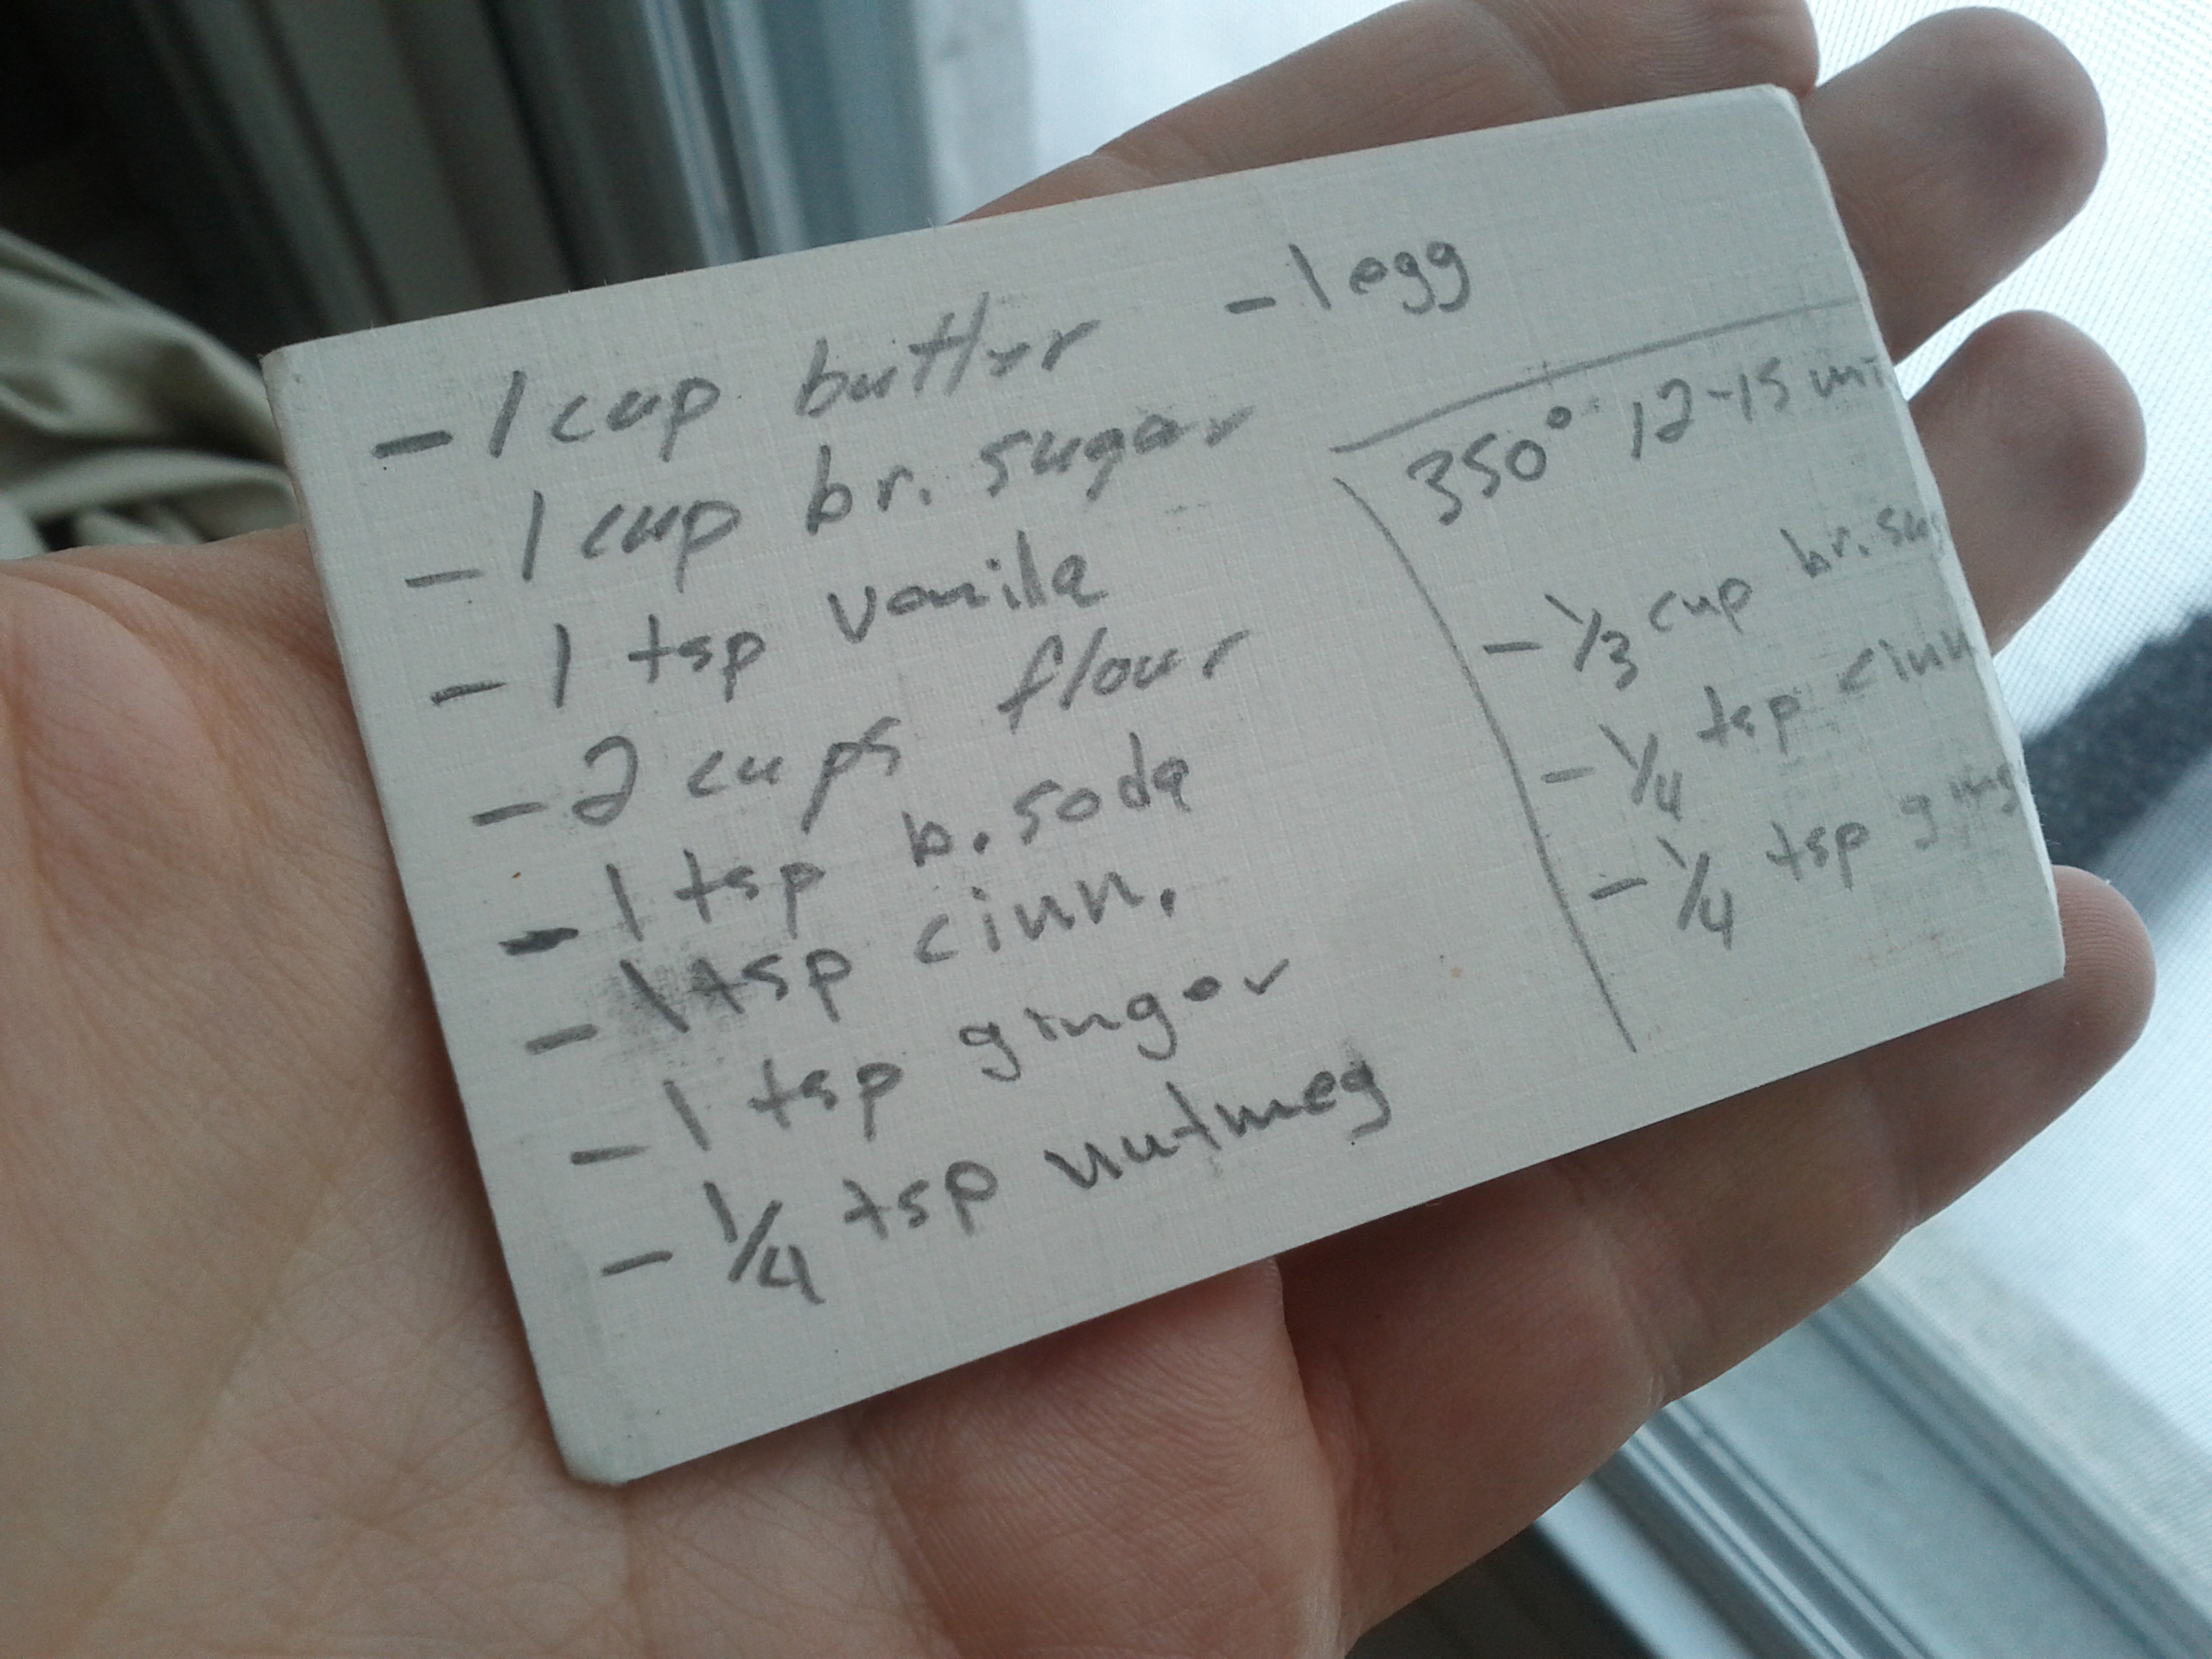 - 1 cup butter
- 1 cup br. sugar
- 1 tsp vanilla
- 2 cups flour
- 1 tsp b. soda
- 1 tsp cinn.
- 1 tsp ginger
- 1/4 tsp nutmeg
- 1 egg
350° 12-15 mi
- 1/3 cup br. sug
- 1/4 tsp cinn
- 1/4 tsp ging